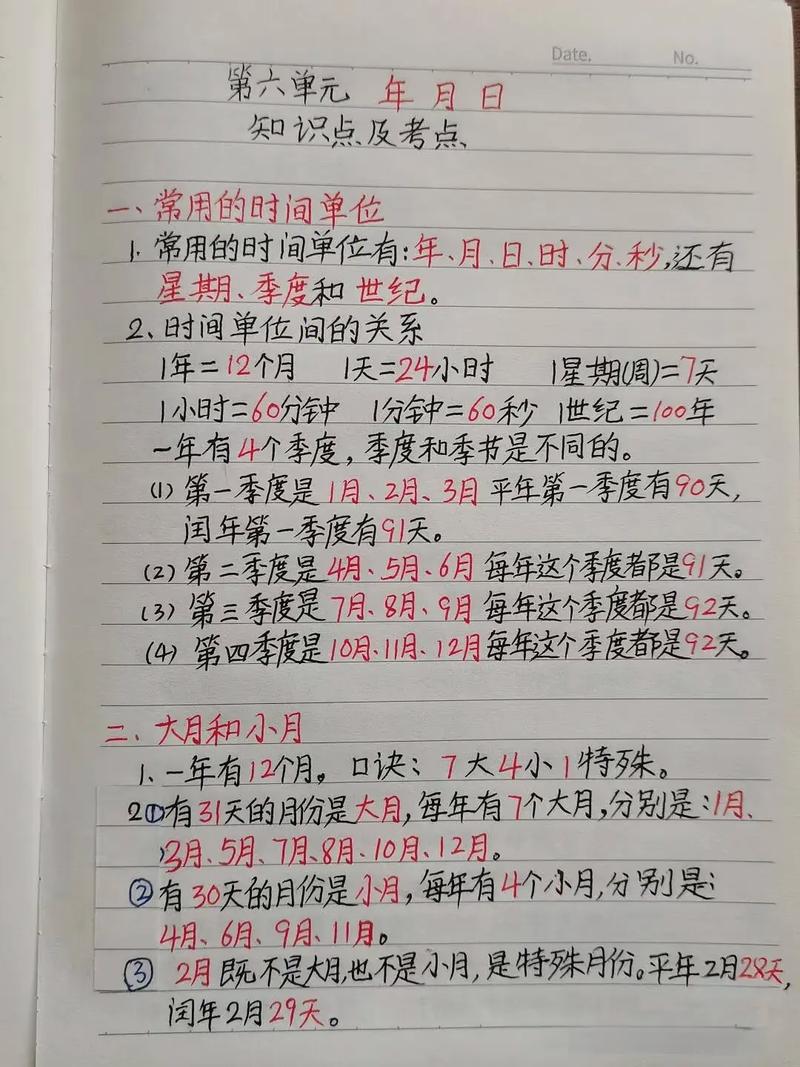 Date.  No.
第六单元 年月日
知识点及考点
一、常用的时间单位
1. 常用的时间单位有:年、月、日、时、分、秒,还有
星期、季度和世纪。
2、时间单位间的关系
1年=12个月 1天=24小时 1星期(周)=7天
1小时=60分钟 1分钟=60秒 1世纪=100年
一年有4个季度,季度和季节是不同的。
(1) 第一季度是1月、2月、3月 平年第一季度有90天,
闰年第一季度有91天。
(2) 第二季度是4月、5月、6月 每年这个季度都是91天。
(3) 第三季度是7月、8月、9月 每年这个季度都是92天。
(4) 第四季度是10月、11月、12月每年这个季度都是92天。
二、大月和小月
1、一年有12个月。 口诀:7大4小1特殊。
2①有31天的月份是大月,每年有7个大月,分别是:1月、
3月、5月、7月、8月、10月、12月。
②有30天的月份是小月,每年有4个小月,分别是:
4月、6月、9月、11月。
③ 2月既不是大月,也不是小月,是特殊月份。平年2月28天,
闰年2月29天。